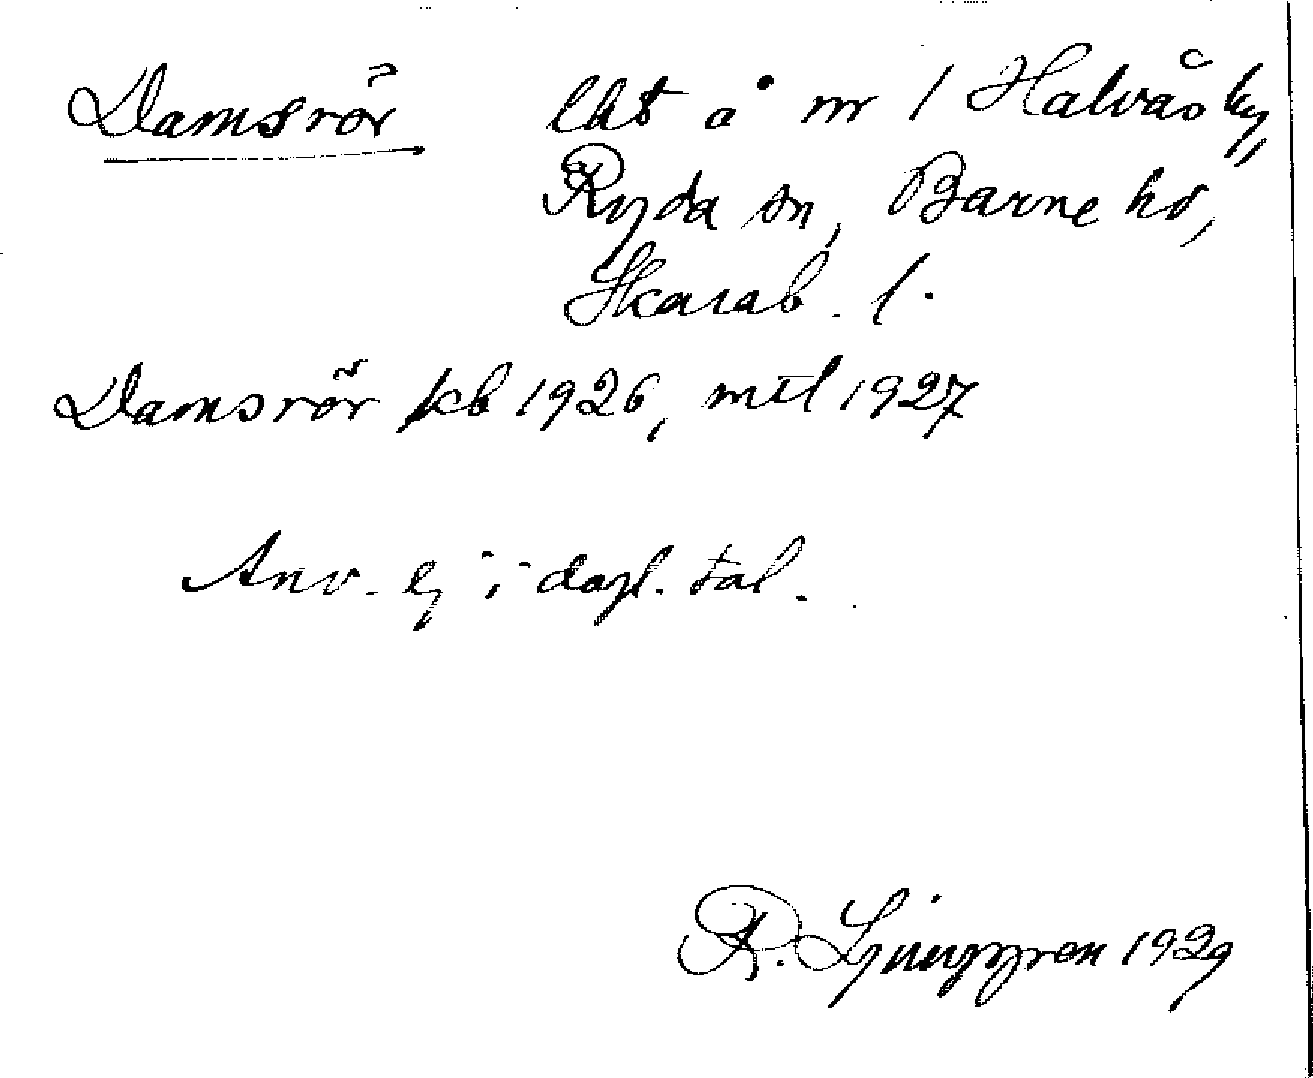 Damsrör lht å nr 1 Halvås by,
Ryda sn, Barne hd,
Skarab. l.
Damsrör kb 1926, mtl 1927
Anv. ej i dagl. tal.
R. Ljunggren 1929